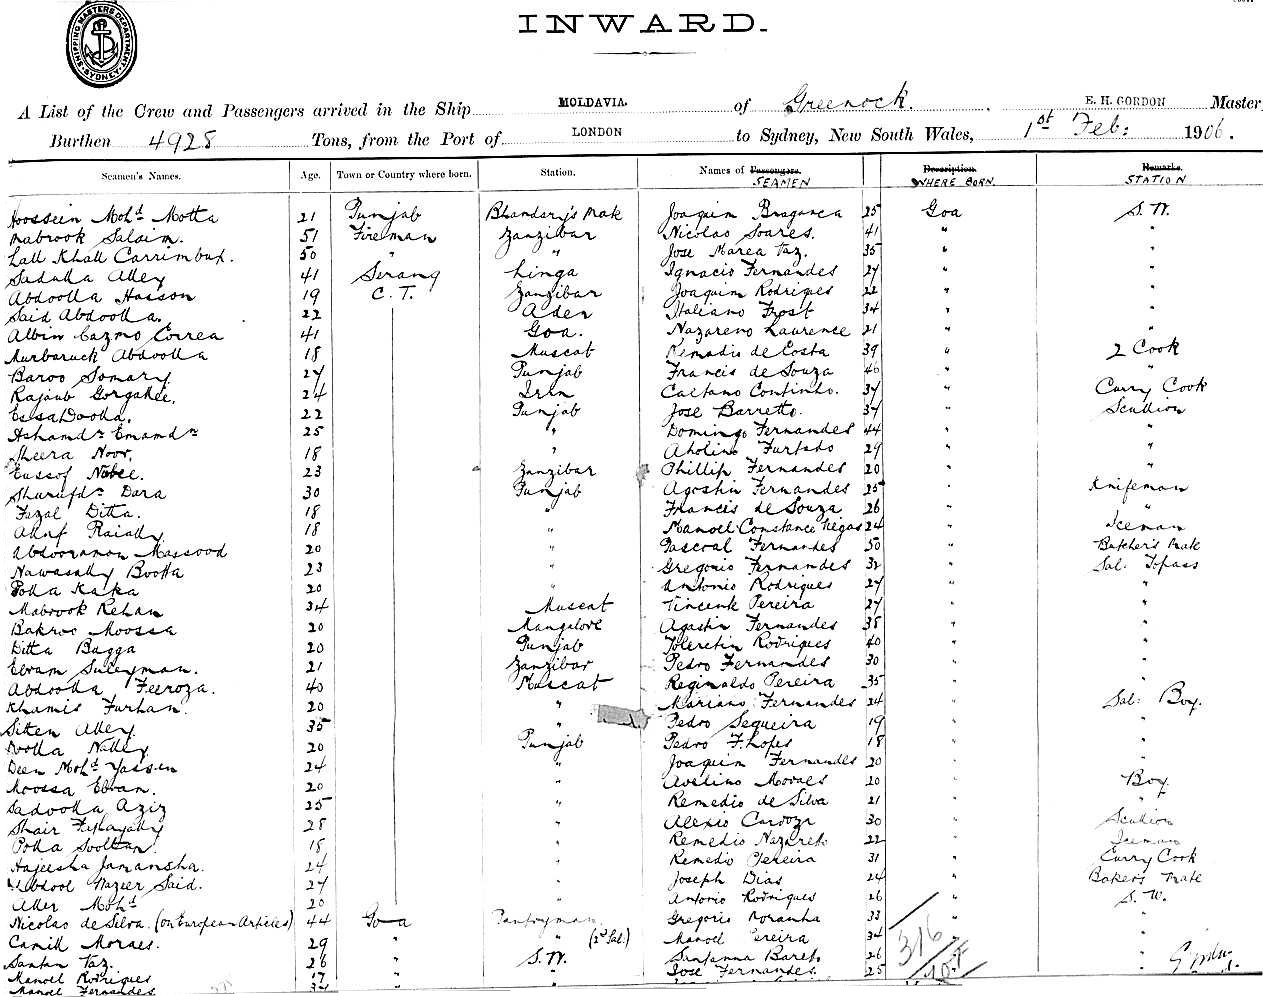 SHIPPING MASTERS DEPARTMENT SYDNEY
INWARD.
A List of the Crew and Passengers arrived in the Ship MOLDAVIA. of Greenock. E. H. GORDON Master
Burthen 4928 Tons, from the Port of LONDON to Sydney, New South Wales, 1st Feb: 1906.
Seamen's Names. Age. Town or Country where born. Station. Names of Passengers. Description. Remarks.
SEAMEN WHERE BORN. STATION
Hoossein Mohd Motta 21 Punjab Bhandary's Mate Joaquim Braganca 25 Goa S. W.
Mabrook Salaim. 51 Fireman Zanzibar Nicolao Soares. 41 " "
Lall Khall Carrimbux. 50 " " Jose Marea Taz. 35 " "
Sadulla Alley 41 Serang Linga Ignacio Fernandes 27 " "
Abdoolla Hasson 19 C. T. Zanzibar Joaquim Rodrigues 22 " "
Said Abdoolla. 22 Aden Italiano Frost 34 " "
Albin Cazmo Correa 41 Goa. Nazareno Laurence 21 " "
Murbaruck Abdoolla 18 Muscat Remadio de Costa 39 " 2 Cook
Baroo Somary 27 Punjab Francis de Souza 46 " "
Rajaub Gorgallee. 24 Caetano Continho. 37 " Curry Cook
Essa Doolla. 22 Punjab Jose Barretto. 37 " Scullion
Ashamdn Emamdn 25 " Domingo Fernandes 44 " "
Sheera Noor. 18 " Furtado 29 " "
Eussof Nabee. 23 Zanzibar Phillip Fernandes 20 " "
Shurufdn Dara 30 Punjab Agostin Fernandes 25 " Knifeman
Fezal Ditta. 18 " Francis de Souza 26 "
18 " Manoel Constance 24 " Iceman
Abdooraman Massood 20 " Pascoal Fernandes 50 " Butcher's Mate
Nawasally Bootta 23 " Gregorio Fernandes 32 " Sal: Topass
Polla Kaka 20 " Antonio Rodrigues 27 " "
Mabrook Rehan 34 Muscat Vincent Pereira 27 " "
Bakroo Moossa 20 Mangalore Agastin Fernandes 38 " "
Ditta Bagga 20 Punjab Tolentin Rodrigues 40 " "
Ebram Suleyman. 21 Zanzibar Pedro Fernandes 30 " "
Abdoolla Feeroza. 40 Muscat Reginaldo Pereira 35 " "
Khamis Furhan. 20 " Mariano Fernandes 24 " Sal: Boy.
Sitten Alley 35 " Pedro Sequeira 19 " "
Doolla Nattey 20 Punjab Pedro F. Lopes 18 " "
Deen Mohd Yassen 24 " Joaquim Fernandes 20 " "
Moossa Ebram. 20 " Avelino Moraes 20 " Boy.
Sadoolla Aziz 25 " Remedio de Silva 21 " "
Shair 28 " Alexio Cardoza 30 " Scullion
Polla Sooltan. 18 " Remedio Nazareth 22 " Iceman
Hajeesha Jamansha. 24 " Remedio Pereira 31 " Curry Cook
Abdool Nazier Said. 27 " Joseph Dias 24 " Baker's Mate
Aller Mohd 20 " Antonio Rodrigues 26 " S. W.
Nicolas de Silva. (on European Articles) 44 Goa Pantryman Gregorio Noranha 33 " "
Camill Moraes. 29 " " (2nd Sal.) Manoel Pereira 34 " "
Santan Taz. 26 " S. W. Santanna Bareto 26 " "
Manoel Rodrigues 17 " " Jose Fernandes. 25 " "
Manoel Fernandes "
316